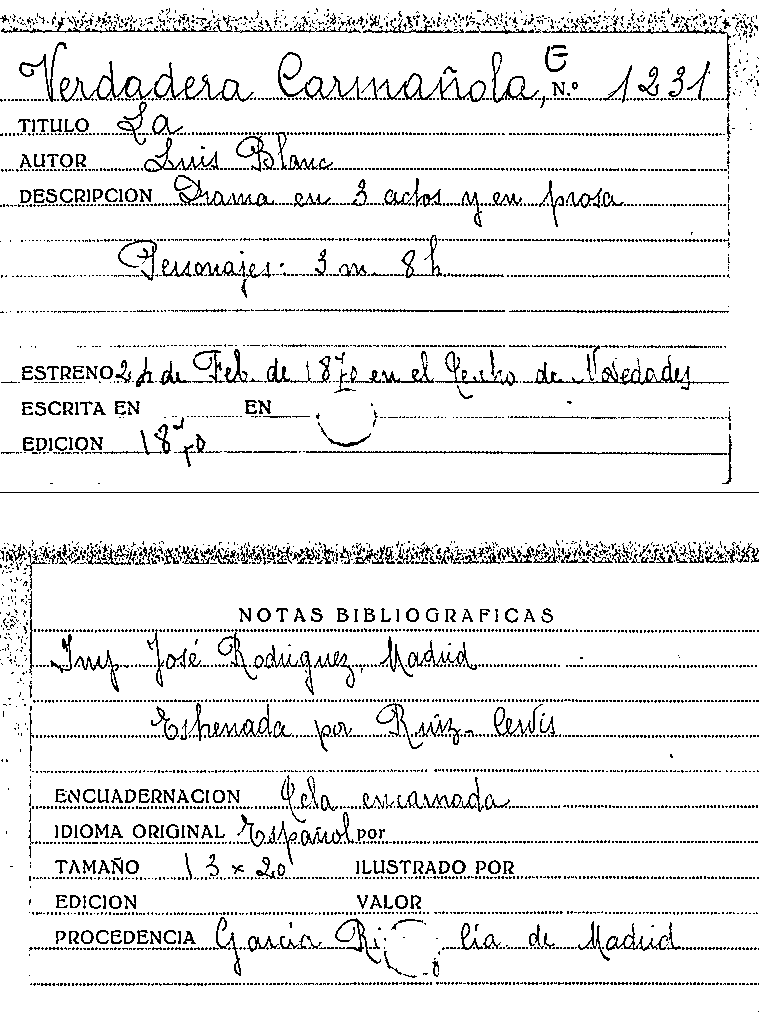 Verdadera Carmañola, E N.º 1231
TITULO La
AUTOR Luis Blanc
DESCRIPCION Drama en 3 actos y en prosa
Personajes: 3 m. 8 h.
ESTRENO de Feb. de 1870 en el de Novedades
ESCRITA EN EN
EDICION 1870
NOTAS BIBLIOGRAFICAS
Imp José Rodriguez, Madrid
Estrenada por Ruiz-
ENCUADERNACION Tela encarnada
IDIOMA ORIGINAL Español por
TAMAÑO 13 x 20 ILUSTRADO POR
EDICION VALOR
PROCEDENCIA García de Madrid